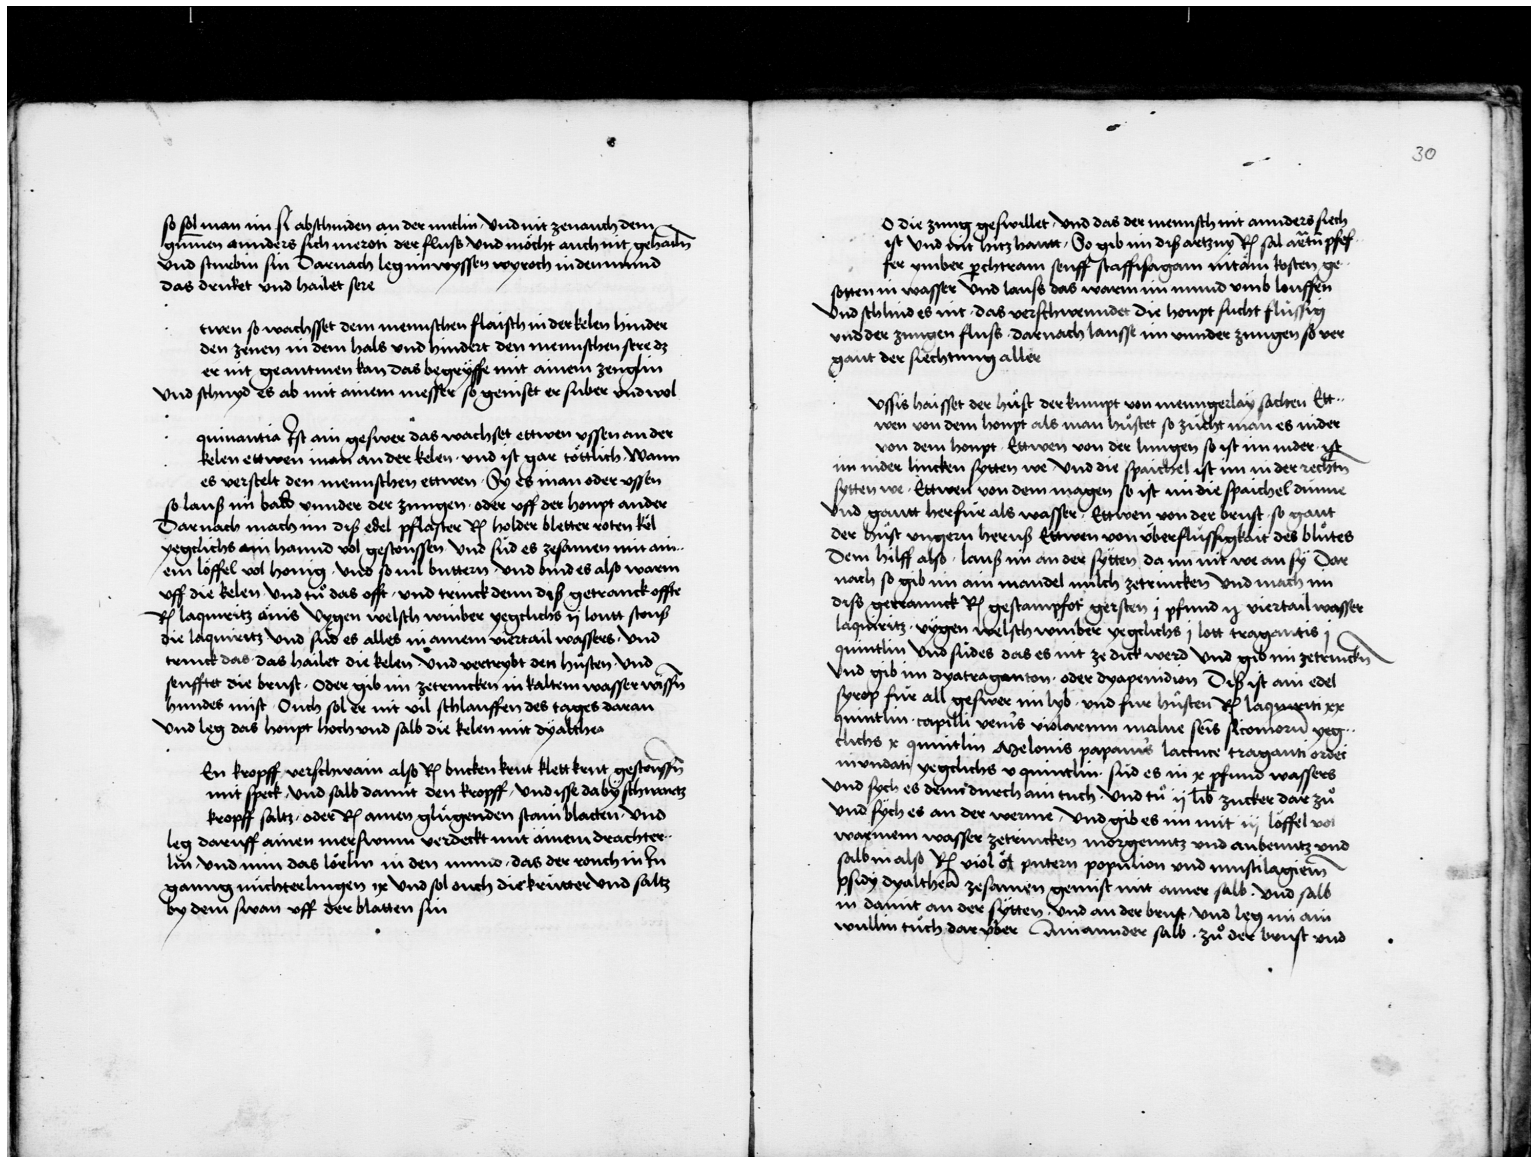 so sol man im si abschniden an der mitlin, Und nit ze nauch dem
gumen annders sich meroti der fluss Und möcht auch nit
und studin sin Darnach leg im wyssen wyroch in den mund
das druket vnd hailet sere
twen so wachsset dem mennschen flaisch in der kelen hinder
den zenen in dem hals vnd hindert den mennschen sere dz
er nit geautmen kan das begryffe mit ainem zenglin
Und schnyd es ab mit ainem messer so geniset er suber vnd wol
quinantia Ist ain geswer das wachset ettwen vssen an der
kelen ettwen inan an der kelen · vnd ist gar töttlich. Wann
es verstelt den mennschen ettwen · Sy es inan oder vssen
so lauß im bald vnnder der zungen · oder vff der houpt ander
Darnach mach im diß edel pflaster Rp holder bletter roten köl
yegclichs ain hannd vol gestoussen Und süd es zesamen mit ain
em löffel vol honig · Und so vil buttern · vnd bind es also warm
vff die kelen Und tů das offt · vnd trinck denn diß getranck offte
Rp laqwiritz änis Vygen welsch winber yegclichs ij loutt stouß
die laqwiritz Und süd es alles in ainem viertail wassers · Und
trinck das · das hailet die kelen Und vertreybt den hůsten · Und
senfftet die brust · Oder gib im zetrincken in kaltem wasser wissen
hundes mist · Ouch sol er nit vil schlauffen des tages daran
Und leg das houpt hoch vnd salb die kelen mit dyalthea
En kropff verschwain also Rp bucken krut klettkrut gestoussen
mit speck, Und salb damit den kropff, Und isse daby schwartz
kropff saltz · oder Rp ainen glügenden stain blatten · Und
leg daruff ainen merswum verdeckt mit ainem drachter
lin Und nim das lörlin in den mund · das der rouch in
ganng nüchterlingen ix Und sol ouch die krütter Und saltz
by dem swan vff der blatten sin
30
O die zung geswillet, Und das der mennsch nit annders siech
ist Und nit hitz hautt · So gib im diß artzny Rp sal pfef
fer ymber perchtram senff staffisagam kosten ge
sotten in wasser Und lauß das warm im mund vmb louffen
Und schlind es nit · das verschwenndet die houpt sucht flüssig
vnd der zungen fluss · darnach lausse im vnnder zungen so ver
gaut der siechtung aller
ussis haisset der hůst der kumpt von mengerlay sachen Ett
wen von dem houpt als man hůstet so zücht man es nider
von dem houpt · Ettwen von der lungen so ist im in der · ist
im in der lincken sytten we Und die spaichel ist im in der rechten
sytten we · Ettwen von dem magen so ist im die spaichel dünne
Und gautt herfür als wasser · Ettwen von der brust · so gaut
der hůst vngern heruß Ettwen von überflüssigkait des blůtes
Dem hilff also · lauß im an der sytten da im nit we an sy Dar
nach so gib im ain mandel milch zetrincken Und mach im
diss getranck Rp gestampfot gersten j pfund ij viertail wasser
laqwiritz · vygen welsch winber yegclichs j lott tragantis j
quintlin Und südes das es nit ze dick werd Und gib im zetrincken
Und gib im dyatraganton · oder dyapenidion Diß ist ain edel
syrop für all geswer im lyb · vnd für hůsten Rp laqwiriti xx
quintlin · capilli veneris violarum malue yeg
clichs x quintlin Melonis papaueris lactuce traganti ordei
mundati yegclichs v quintlin · süd es in x pfund wassers
Und sych es denn durch ain tuch · Und tů ij lib zucker dar zů
Und sych es an der werme, Und gib es im mit iij löffel vol
warmem wasser zetrincken morgenntz vnd aubenntz vnd
salb in also Rp viol öl putern populion vnd muscilaginem
psidy dyalthea zesamen gemist mit ainer salb · Und salb
in damit an der sytten · Und an der brust · Und leg im ain
wullin tůch dar vber Ain annder salb · zů der brust vnd